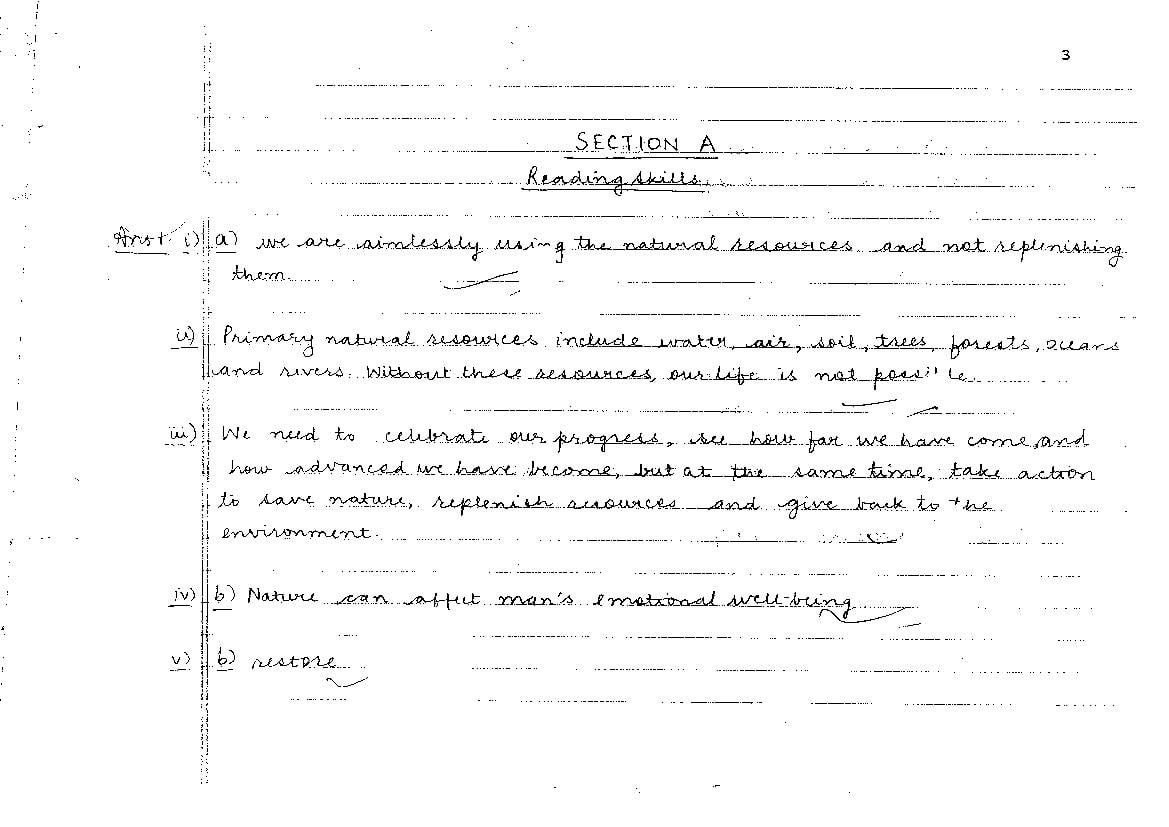 3
SECTION A
Reading Skills.
Ans1 i) a) we are aimlessly using the natural resources and not replenishing
them.
ii) Primary natural resources include water, air, soil, trees, forests, oceans
and rivers. Without these resources, our life is not possible.
iii) We need to celebrate our progress, see how far we have come, and
how advanced we have become, but at the same time, take action
to save nature, replenish resources and give back to the
environment.
iv) b) Nature can affect man's emotional well-being
v) b) restore